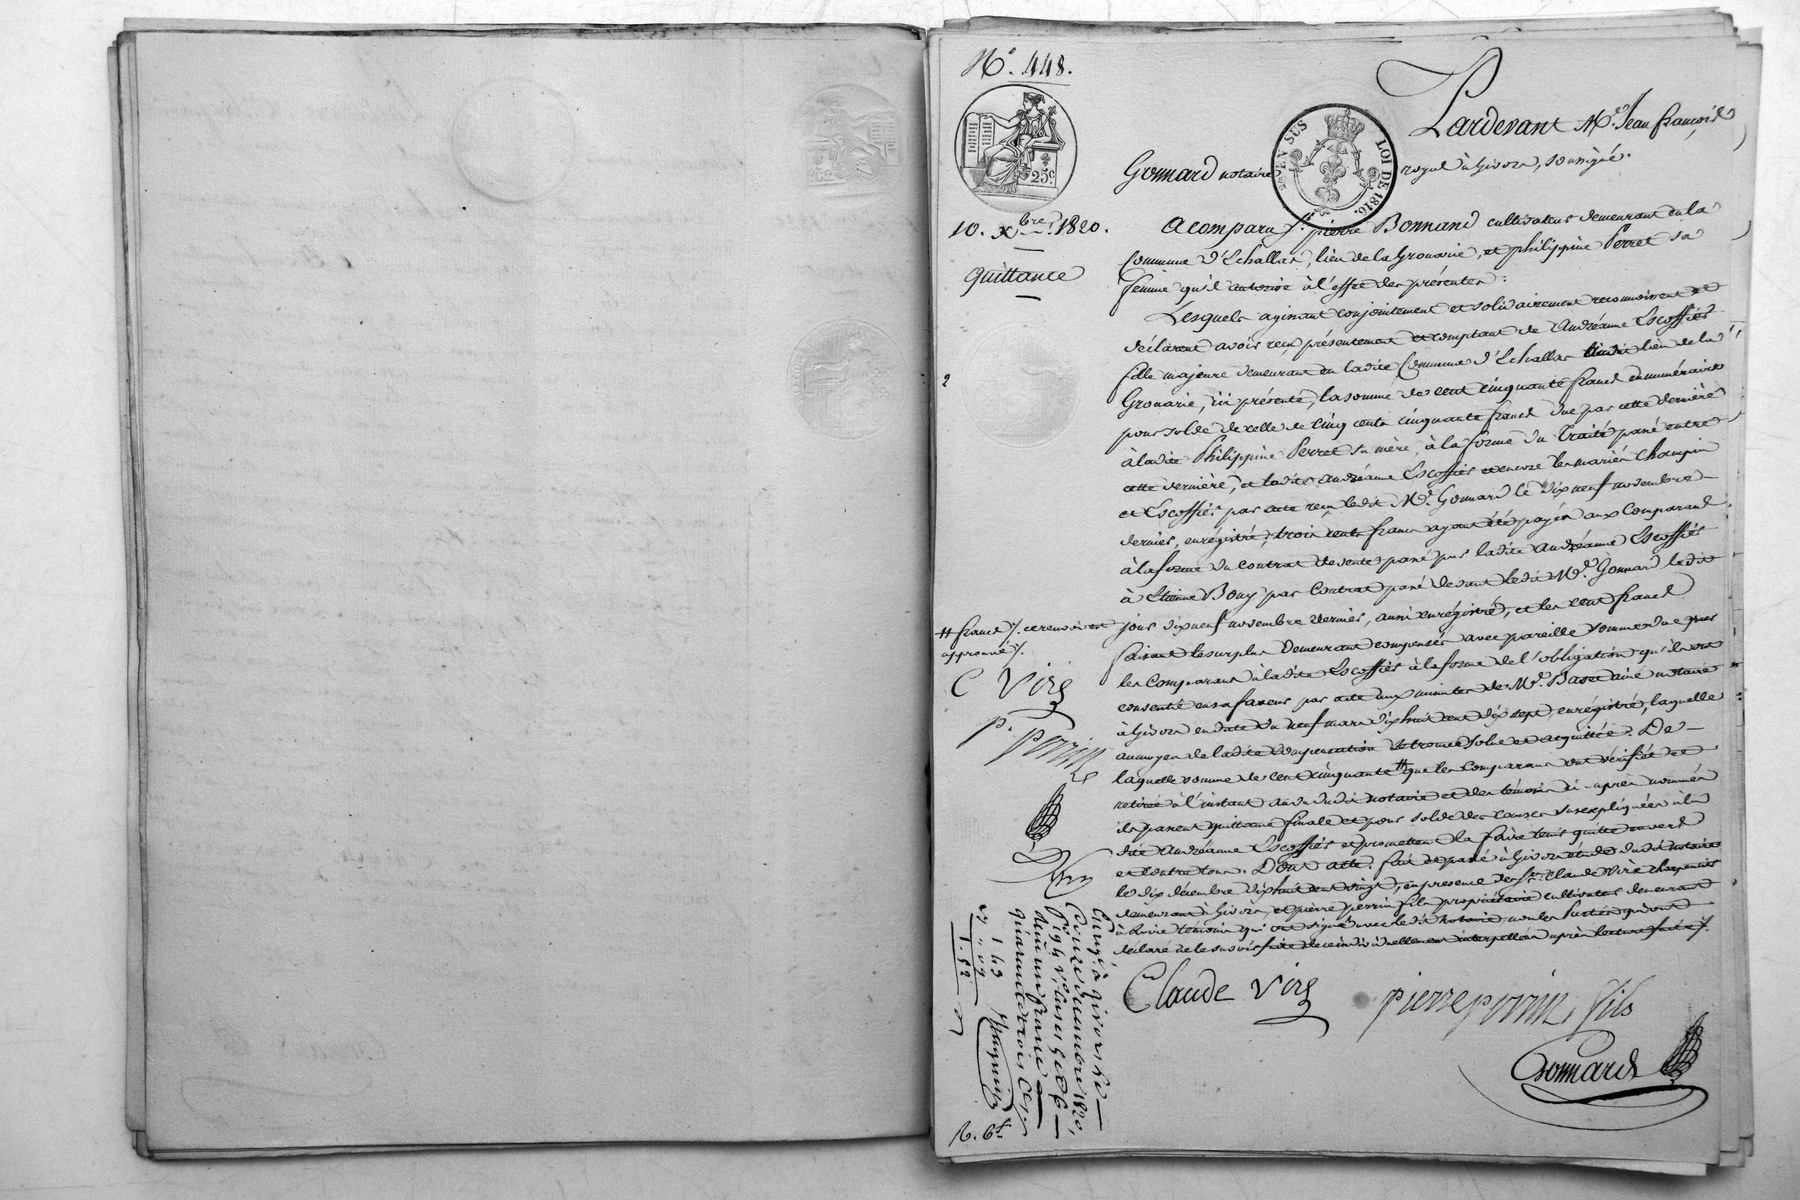 N.° 448.
25.c
EN SUS LOI DE 1816.
10. Xbre. 1820.
quittance
Pardevant M.e Jean françois
Gonnard notaire royal à Givors, soussigné.
A comparu S.r pierre Bonnand cultivateur demeurant en la
commune d'Echallas, lieu de la Gronarie, et philippine Perret sa
femme qu'il autorise à l'effet des présentes:
Lesquels agissant conjointement et solidairement reconnoissent et
déclarent avoir reçu présentement et comptant de Andréanne Escoffier
fille majeure demeurant en ladite Commune d'Echallas susdit lieu de la
Gronarie, ici présente, la somme de cent cinquante francs en numéraire
pour solde de celle de cinq cents cinquante francs due par cette dernière
à ladite Philippine Perret sa mère, à la forme du traité passé entre
cette dernière, et ladite andréanne Escoffier et encore les mariés Champin
et Escoffier par acte reçu ledit M.e Gonnard le dix neuf novembre
dernier, enregistré, trois cents francs ayant été payés aux Comparans
à la forme du contrat de vente passé par ladite andréanne Escoffier
à Etienne Bouy par contrat passé devant ledit M.e Gonnard ledit
jour dix neuf novembre dernier, aussi enregistré, et les cent francs
faisant le surplus demeurant compensés avec pareille somme due par
les Comparans à ladite Escoffier à la forme de l'obligation qu'ils ont
consentie en sa faveur par acte aux minutes de M.e Basset ainé notaire
à Givors en date du neuf mars dix huit cent dix sept, enregistré, laquelle
au moyen de ladite compensation se trouve soldée et acquittée. De
laquelle somme de cent cinquante # que les comparans ont vérifiée et
retirée à l'instant au vu dudit notaire et des témoins ci-après nommés
ils passent quittance finale et pour solde des causes susexpliquées à la
dite Andréanne Escoffier et promettent la faire tenir quitte envers
et contre tous. Dont acte. fait et passé à Givors étude dudit notaire
le dix décembre dix huit cent vingt, en presence des S.rs Claude Virè charpentier
demeurant à Givors, et pierre perrin fils propriétaire cultivateur demeurant
à témoins qui ont signé avec ledit notaire non les parties qui ont
déclaré ne le savoir faire de ce individuellement interpellés après lecture faite ./.
# francs ./. ce renvoi est
approuvé ./.
C Virè
P. Perrin
Claude Virè
pierre perrin, fils
Gonnard
Enrég.é à givors le
douze décembre 1820,
f.° 94 v.° cases 5 et 6
reçu un franc
quarante trois c.es
1 43
" 09
1. 52